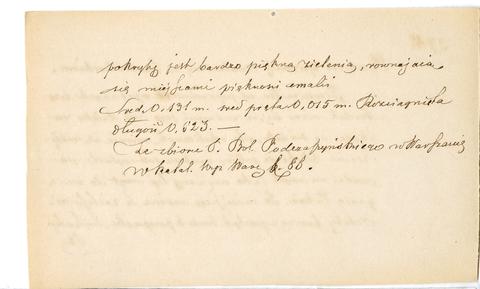 pokryty jest bardzo piękną zielenią, równającą
się miejscami piękności emalii
Śred. 0,131 m. śred pręta 0,015 m. Rozciągnięta
długość 0,623. —
Ze zbioru P. Bol Podczaszyńskiego w Warszawie
w katal. wyst. Warsz. 88.